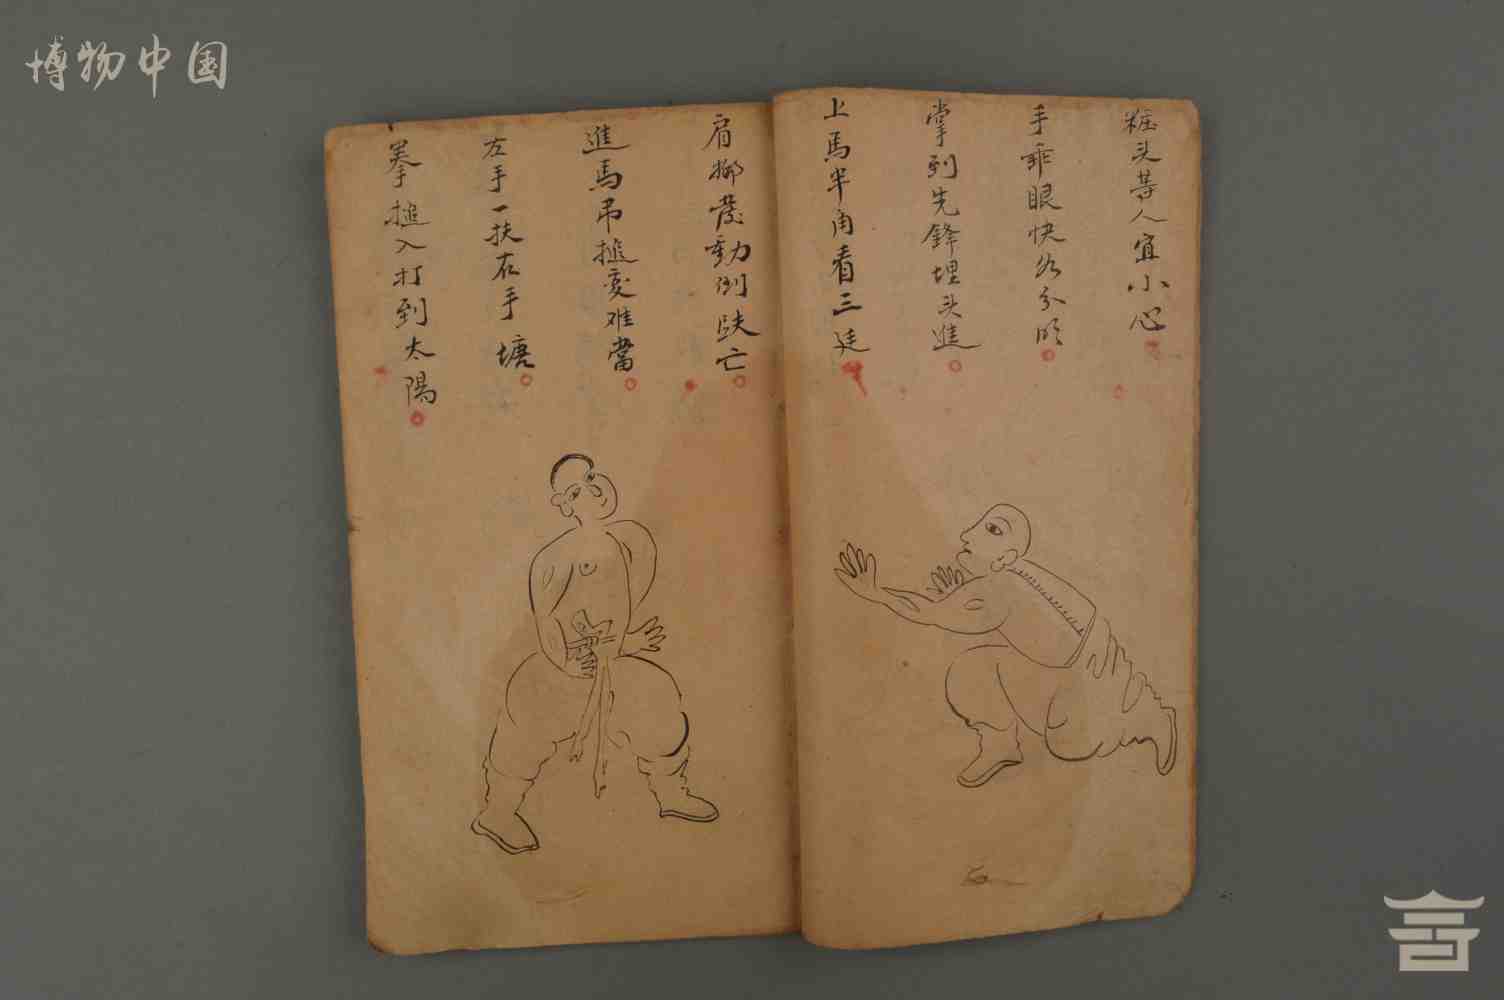 博物中国
粧头等人宜小心
手乖眼快分明
掌到先鋒埋头進
上馬半角看三廷
肩挪發動倒趺亡
進馬吊搥变难當
左手一扶右手塘
拳搥入打到太陽